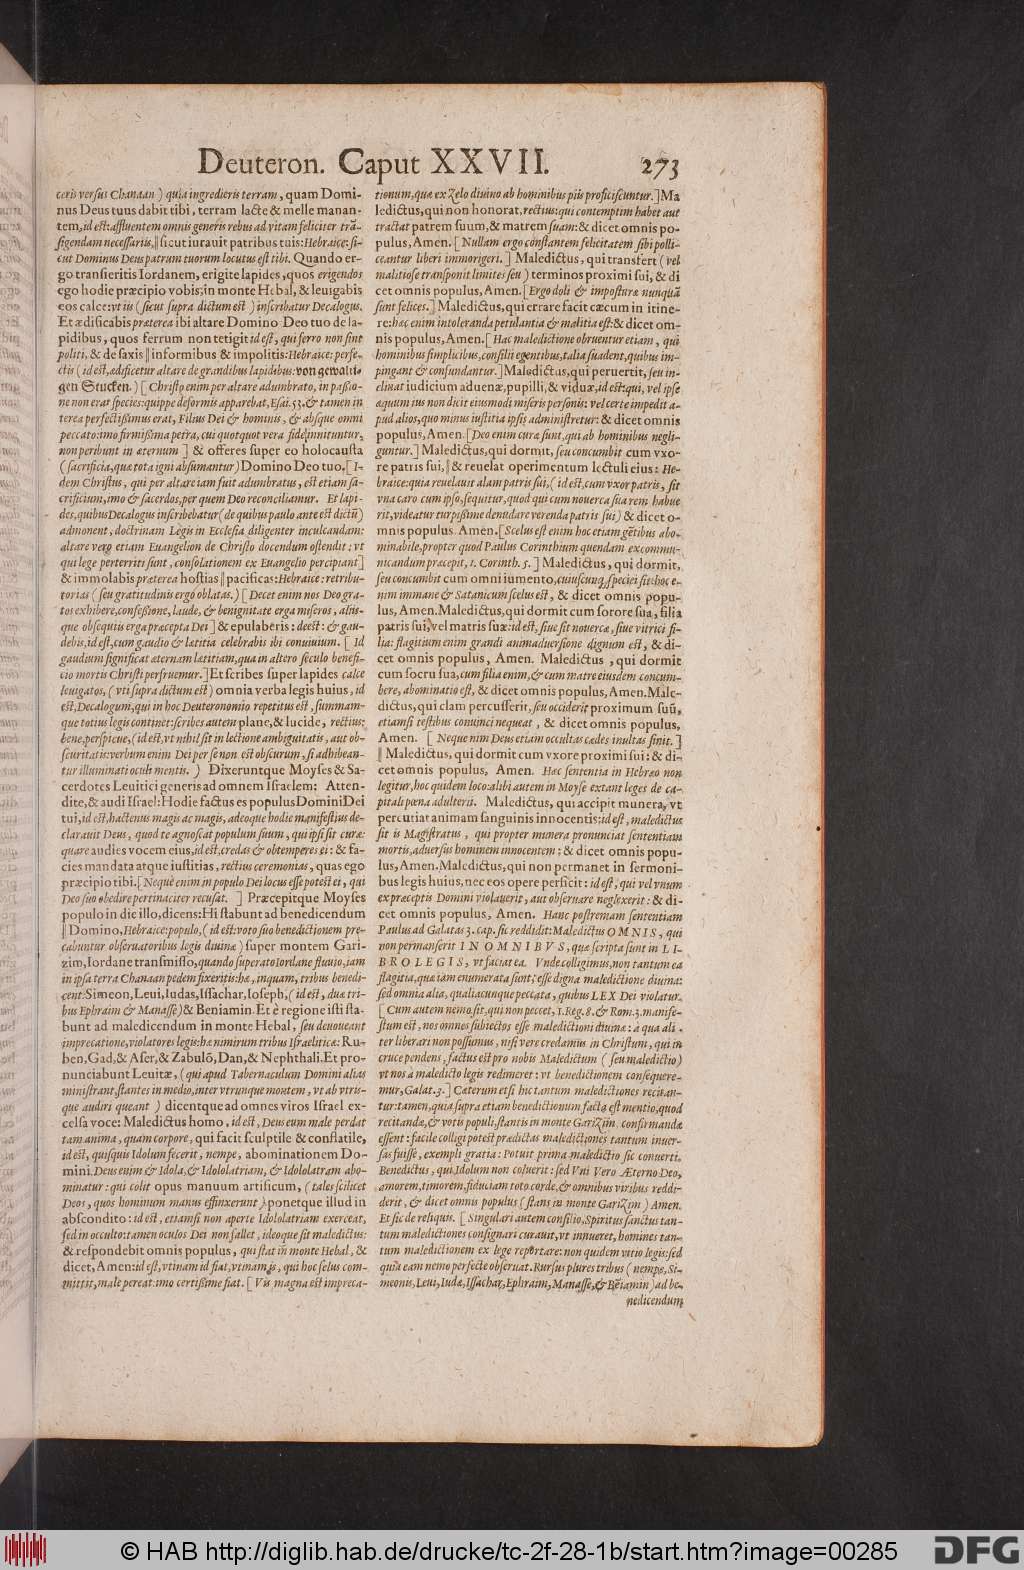 Deuteron. Caput XXVII. 273
ceris versus Chanaan) quia ingredieris terram, quam Domi-
nus Deus tuus dabit tibi, terram lacte & melle manan-
tem, id est: affluentem omnis generis rebus ad vitam feliciter trā-
sigendam necessariis, || sicut iurauit patribus tuis: Hebraice: si-
cut Dominus Deus patrum tuorum locutus est tibi. Quando er-
go transieritis Iordanem, erigite lapides, quos erigendos
ego hodie præcipio vobis, in monte Hebal, & leuigabis
eos calce: vt iis (sicut supra dictum est) inscribatur Decalogus.
Et ædificabis præterea ibi altare Domino Deo tuo de la-
pidibus, quos ferrum non tetigit id est, qui ferro non sint
politi, & de saxis || informibus & impolitis: Hebraice: perfe-
ctis (id est, ædificetur altare de grandibus lapidibus: von gewalti-
gen Stucken.) [Christo enim per altare adumbrato, in passio-
ne non erat species: quippe deformis apparebat, Esai. 53. & tamen in
terea perfectissimus erat, Filius Dei & hominis, & absque omni
peccato: imo firmissima petra, cui quotquot vera fide innituntur,
non peribunt in æternum] & offeres super eo holocausta
(sacrificia, quæ tota igni absumantur) Domino Deo tuo, [I-
dem Christus, qui per altare iam fuit adumbratus, est etiam sa-
crificium, imo & sacerdos, per quem Deo reconciliamur. Et lapi-
des, quibus Decalogus inscribebatur (de quibus paulo ante est dictū)
admonent, doctrinam Legis in Ecclesia diligenter inculcandam:
altare vero etiam Euangelion de Christo docendum ostendit: vt
qui lege perterriti sunt, consolationem ex Euangelio percipiant]
& immolabis præterea hostias || pacificas: Hebraice: retribu-
torias (seu gratitudinis ergo oblatas.) [Decet enim nos Deo gra-
tos exhibere, confessione, laude, & benignitate erga miseros, aliis-
que obsequiis erga præcepta Dei] & epulaberis: deest: & gau-
debis, id est, cum gaudio & lætitia celebrabis ibi conuiuium. [Id
gaudium significat æternam lætitiam, qua in altero seculo benefi-
cio mortis Christi perfruemur.] Et scribes super lapides calce
leuigatos, (vti supra dictum est) omnia verba legis huius, id
est, Decalogum, qui in hoc Deuteronomio repetitus est, summam-
que totius legis continet: scribes autem plane, & lucide, rectius:
bene, perspicue, (id est, vt nihil sit in lectione ambiguitatis, aut ob-
scuritatis: verbum enim Dei per se non est obscurum, si adhibean-
tur illuminati oculi mentis.) Dixeruntque Moyses & Sa-
cerdotes Leuitici generis ad omnem Israelem: Atten-
dite, & audi Israel: Hodie factus es populus Domini Dei
tui, id est, hactenus magis ac magis, adeoque hodie manifestius de-
clarauit Deus, quod te agnoscat populum suum, qui ipsi sit curæ:
quare audies vocem eius, id est, credas & obtemperes ei: & fa-
cies mandata atque iustitias, rectius ceremonias, quas ego
præcipio tibi. [Neque enim in populo Dei locus esse potest ei, qui
Deo suo obedire pertinaciter recusat.] Præcepitque Moyses
populo in die illo, dicens: Hi stabunt ad benedicendum
|| Domino, Hebraice: populo, (id est: voto suo benedictionem pre-
cabuntur obseruatoribus legis diuinæ) super montem Gari-
zim, Iordane transmisso, quando superato Iordane fluuio, iam
in ipsa terra Chanaan pedem fixeritis: hæ, inquam, tribus benedi-
cent: Simeon, Leui, Iudas, Issachar, Ioseph, (id est, duæ tri-
bus Ephraim & Manasse) & Beniamin. Et è regione isti sta-
bunt ad maledicendum in monte Hebal, seu deuoueant
imprecatione, violatores legis: hæ nimirum tribus Israeliticæ: Ru-
ben, Gad, & Aser, & Zabulō, Dan, & Nephthali. Et pro-
nunciabunt Leuitæ, (qui apud Tabernaculum Domini alias
ministrant, stantes in medio, inter vtrunque montem, vt ab vtris-
que audiri queant) dicentque ad omnes viros Israel ex-
celsa voce: Maledictus homo, id est, Deus eum male perdat
tam anima, quam corpore, qui facit sculptile & conflatile,
id est, quisquis Idolum fecerit, nempe, abominationem Do-
mini. Deus enim & Idola, & Idololatriam, & Idololatram abo-
minatur: qui colit opus manuum artificum, (tales scilicet
Deos, quos hominum manus effinxerunt) ponetque illud in
abscondito: id est, etiamsi non aperte Idololatriam exerceat,
sed in occulto: tamen oculos Dei non fallet, ideoque sit maledictus:
& respondebit omnis populus, qui stat in monte Hebal, &
dicet, Amen: id est, vtinam id fiat, vtinam is, qui hoc scelus com-
mittit, male pereat: imo certissime fiat. [Vis magna est impreca-
tionum, quæ ex zelo diuino ab hominibus piis proficiscuntur.] Ma
ledictus, qui non honorat, rectius: qui contemptim habet aut
tractat patrem suum, & matrem suam: & dicet omnis po-
pulus, Amen. [Nullam ergo constantem felicitatem sibi polli-
ceantur liberi immorigeri.] Maledictus, qui transfert (vel
malitiose transponit limites seu) terminos proximi sui, & di
cet omnis populus, Amen. [Ergo doli & imposturæ nunquā
sunt felices.] Maledictus, qui errare facit cæcum in itine-
re: hæc enim intoleranda petulantia & malitia est: & dicet om-
nis populus, Amen. [Hac maledictione obruentur etiam, qui
hominibus simplicibus, consilii egentibus, talia suadent, quibus im-
pingant & confundantur.] Maledictus, qui peruertit, seu in-
clinat iudicium aduenæ, pupilli, & viduæ, id est: qui, vel ipse
æquum ius non dicit eiusmodi miseris personis: vel certe impedit a-
pud alios, quo minus iustitia ipsis administretur: & dicet omnis
populus, Amen. [Deo enim curæ sunt, qui ab hominibus negli-
guntur.] Maledictus, qui dormit, seu concumbit cum vxo-
re patris sui, || & reuelat operimentum lectuli eius: He-
braice: quia reuelauit alam patris sui, (id est, cum vxor patris, sit
vna caro cum ipso, sequitur, quod qui cum nouerca sua rem habue
rit, videatur turpissime denudare verenda patris sui) & dicet o-
mnis populus Amen. [Scelus est enim hoc etiam gētibus abo-
minabile, propter quod Paulus Corinthium quendam excommu-
nicandum præcepit, 1. Corinth. 5.] Maledictus, qui dormit,
seu concumbit cum omni iumento, cuiuscunq; speciei sit: hoc e-
nim immane & Satanicum scelus est, & dicet omnis popu-
lus, Amen. Maledictus, qui dormit cum sorore sua, filia
patris sui, vel matris suæ: id est, siue sit nouercæ, siue vitrici fi-
lia: flagitium enim grandi animaduersione dignum est, & di-
cet omnis populus, Amen. Maledictus, qui dormit
cum socru sua, cum filia enim, & cum matre eiusdem concum-
bere, abominatio est, & dicet omnis populus, Amen. Male-
dictus, qui clam percusserit, seu occiderit proximum suū,
etiamsi testibus conuinci nequeat, & dicet omnis populus,
Amen. [Neque nim Deus etiam occultas cædes inultas sinit.]
|| Maledictus, qui dormit cum vxore proximi sui: & di-
cet omnis populus, Amen. Hæc sententia in Hebræo non
legitur, hoc quidem loco: alibi autem in Moyse extant leges de ca-
pitali pœna adulterii. Maledictus, qui accipit munera, vt
percutiat animam sanguinis innocentis: id est, maledictus
sit is Magistratus, qui propter munera pronunciat sententiam
mortis, aduersus hominem innocentem: & dicet omnis popu-
lus, Amen. Maledictus, qui non permanet in sermoni-
bus legis huius, nec eos opere perficit: id est, qui vel vnum
ex præceptis Domini violauerit, aut obseruare neglexerit: & di-
cet omnis populus, Amen. Hanc postremam sententiam
Paulus ad Galatas 3. cap. sic reddidit: Maledictus OMNIS, qui
non permanserit IN OMNIBVS, quæ scripta sunt in LI-
BRO LEGIS, vt faciat ea. Vnde colligimus, non tantum ea
flagitia, quæ iam enumerata sunt, esse digna maledictione diuina:
sed omnia alia, qualiacunque peccata, quibus LEX Dei violatur.
[Cum autem nemo sit, qui non peccet, 1. Reg. 8. & Rom. 3. manife-
stum est, nos omnes subiectos esse maledictioni diuinæ: à qua ali-
ter liberari non possumus, nisi vere credamus in Christum, qui in
cruce pendens, factus est pro nobis Maledictum (seu maledictio)
vt nos à maledicto legis redimeret: vt benedictionem consequere-
mur, Galat. 3.] Cæterum etsi hic tantum maledictiones recitan-
tur: tamen, quia supra etiam benedictionum facta est mentio, quod
recitandæ, & votis populi, stantis in monte Garizim confirmandæ
essent: facile colligi potest prædictas maledictiones tantum inuer-
sas fuisse, exempli gratia: Potuit prima maledictio sic conuerti.
Benedictus, qui Idolum non coluerit: sed Vni Vero Æterno Deo,
amorem, timorem, fiduciam toto corde, & omnibus viribus reddi-
derit, & dicet omnis populus (stans in monte Garizim) Amen.
Et sic de reliquis. [Singulari autem consilio, Spiritus sanctus tan-
tum maledictiones consignari curauit, vt innueret, homines tan-
tum maledictionem ex lege reportare: non quidem vitio legis: sed
quia eam nemo perfecte obseruat. Rursus plures tribus (nempe, Si-
meonis, Leui, Iudæ, Issachar, Ephraim, Manasse, & Beniamin) ad be-
nedicendum
© HAB http://diglib.hab.de/drucke/tc-2f-28-1b/start.htm?image=00285
DFG